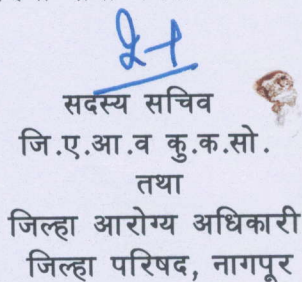 सदस्य सचिव
जि.ए.आ.व कु.क.सो.
तथा
जिल्हा आरोग्य अधिकारी
जिल्हा परिषद, नागपूर